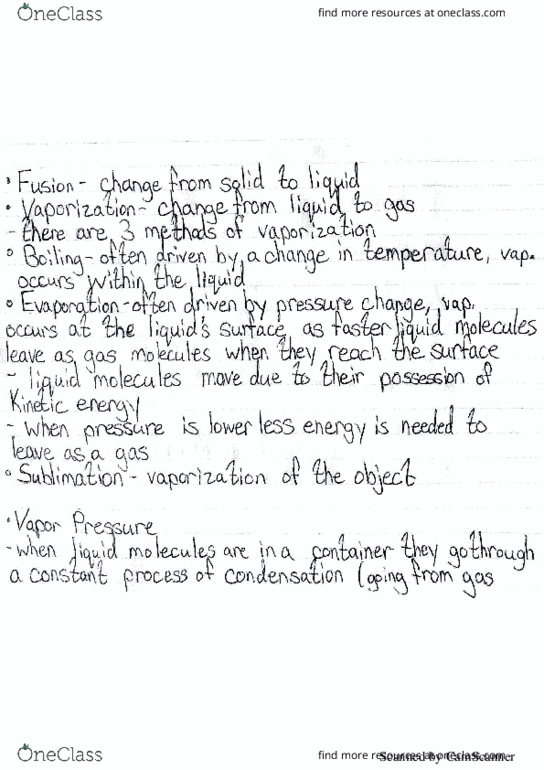 OneClass
find more resources at oneclass.com
• Fusion - change from solid to liquid
• Vaporization - change from liquid to gas
- there are 3 methods of vaporization
° Boiling - often driven by a change in temperature, vap.
occurs within the liquid
° Evaporation - often driven by pressure change, vap.
occurs at the liquid's surface as faster liquid molecules
leave as gas molecules when they reach the surface
- liquid molecules move due to their possession of
Kinetic energy
- when pressure is lower less energy is needed to
leave as a gas
° Sublimation - vaporization of the object
• Vapor Pressure
- when liquid molecules are in a container they go through
a constant process of condensation (going from gas
OneClass
find more resources at oneclass.com
Scanned by CamScanner